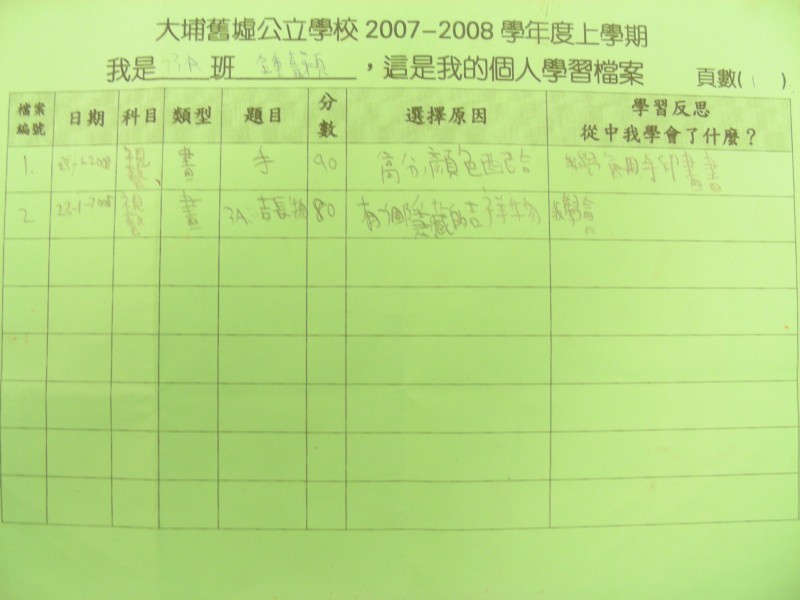 大埔舊墟公立學校 2007-2008 學年度上學期
我是 3A 班 鍾靜穎 ，這是我的個人學習檔案 頁數( 1 )
檔案編號 日期 科目 類型 題目 分數 選擇原因 學習反思 從中我學會了什麼？
1. 視藝 畫 手 90 高分,顏色配合 我學會用手印畫畫
2. 22-1-2008 視藝 畫 3A 吉祥物 80 有個隱藏的吉祥物 我學會